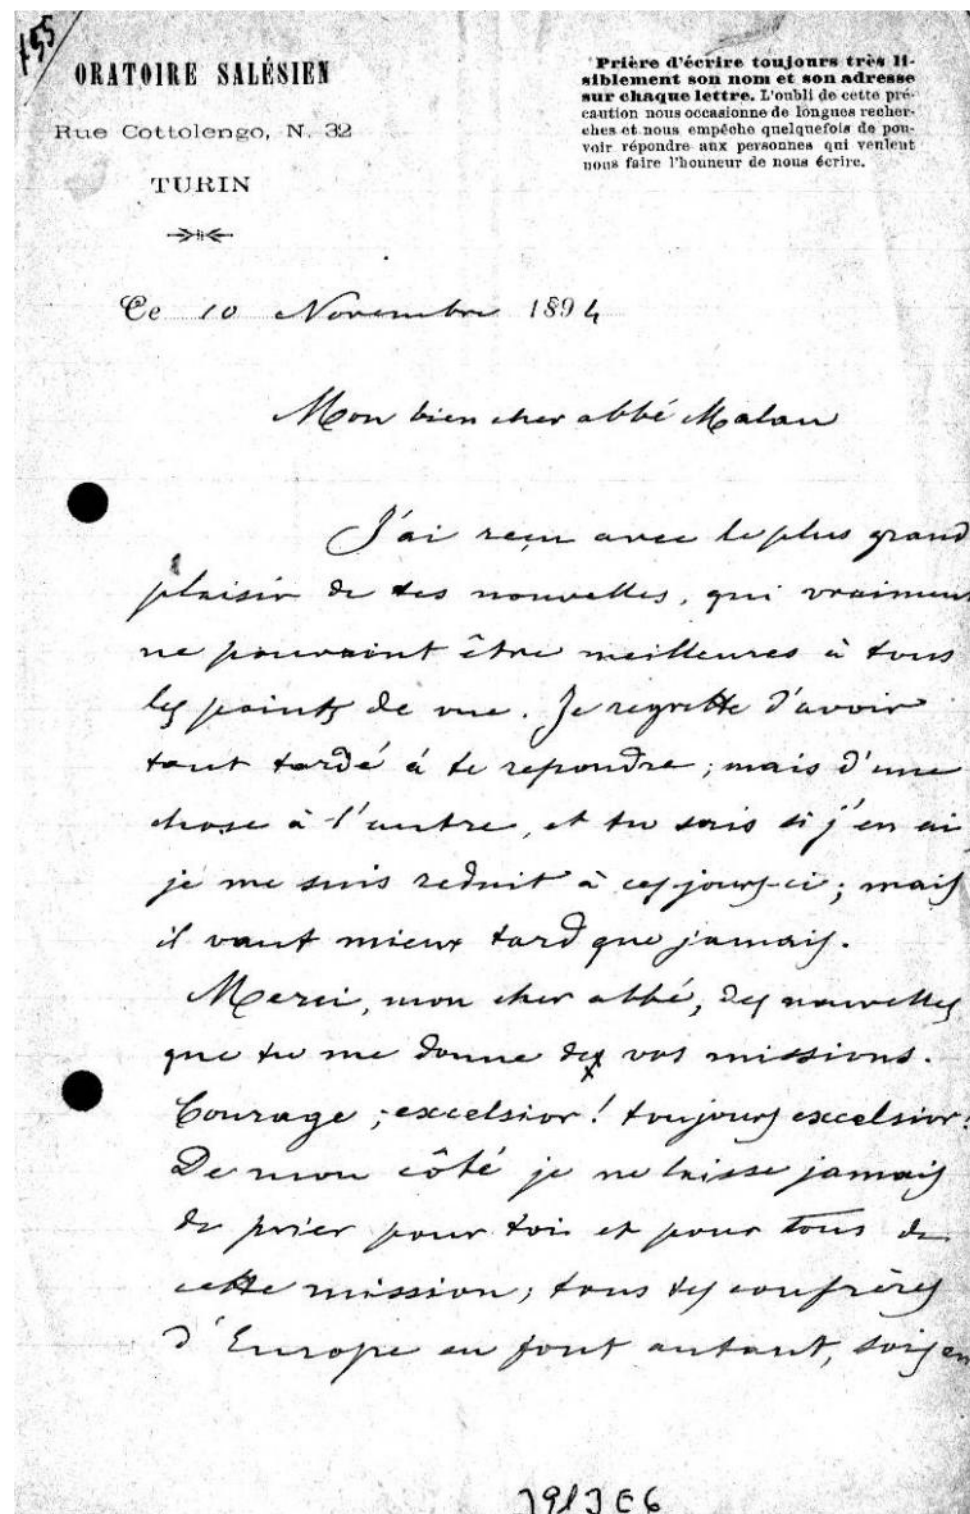 155
ORATOIRE SALÉSIEN
Rue Cottolengo, N. 32
TURIN
Prière d'écrire toujours très li-
siblement son nom et son adresse
sur chaque lettre. L'oubli de cette pré-
caution nous occasionne de longues recher-
ches et nous empêche quelquefois de pou-
voir répondre aux personnes qui veulent
nous faire l'honneur de nous écrire.
Ce 10 Novembre 1894
Mon bien cher abbé Malan
J'ai reçu avec le plus grand
plaisir de tes nouvelles, qui vraiment
ne pouvaint être meilleures à tous
les points de vue. Je regrette d'avoir
tant tardé à te repondre; mais d'une
chose à l'autre, et tu sais si j'en ai
je me suis reduit à ces jours-ci; mais
il vaut mieux tard que jamais.
Merci, mon cher abbé, des nouvelles
que tu me donne de vos missions.
Courage; excelsior! toujours excelsior!
De mon côté je ne laisse jamais
de prier pour toi et pour tous de
cette mission; tous tes confrères
d'Europe en font autant, sois en